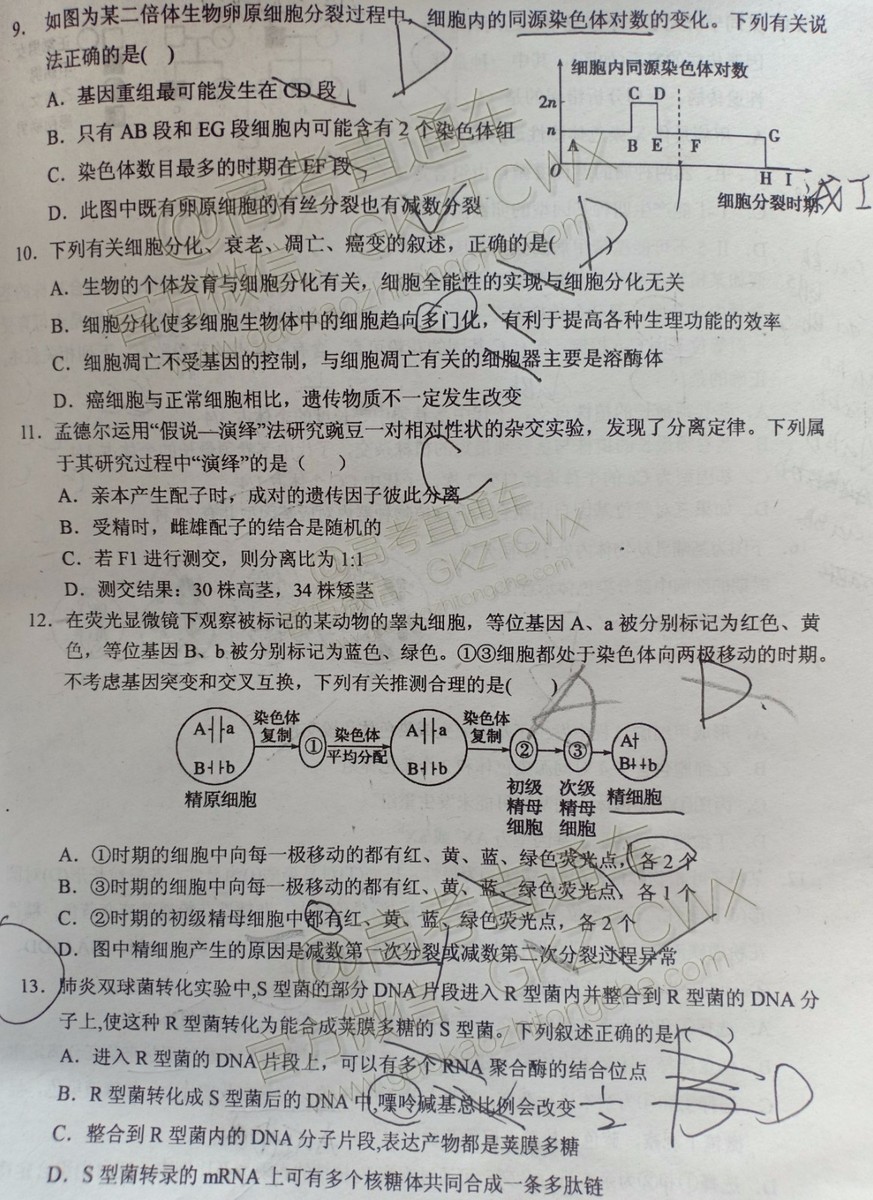 9. 如图为某二倍体生物卵原细胞分裂过程中，细胞内的同源染色体对数的变化。下列有关说
法正确的是(　)
A．基因重组最可能发生在 CD 段
B．只有 AB 段和 EG 段细胞内可能含有 2 个染色体组
C．染色体数目最多的时期在 EF 段
D．此图中既有卵原细胞的有丝分裂也有减数分裂
细胞内同源染色体对数
2n
n
C D
A B E F G
O H I
细胞分裂时期
减I
D
10．下列有关细胞分化、衰老、凋亡、癌变的叙述，正确的是(　)
D
A．生物的个体发育与细胞分化有关，细胞全能性的实现与细胞分化无关
B．细胞分化使多细胞生物体中的细胞趋向多门化，有利于提高各种生理功能的效率
C．细胞凋亡不受基因的控制，与细胞凋亡有关的细胞器主要是溶酶体
D．癌细胞与正常细胞相比，遗传物质不一定发生改变
11．孟德尔运用“假说—演绎”法研究豌豆一对相对性状的杂交实验，发现了分离定律。下列属
于其研究过程中“演绎”的是（　）
C
A．亲本产生配子时，成对的遗传因子彼此分离
B．受精时，雌雄配子的结合是随机的
C．若 F1 进行测交，则分离比为 1:1
D．测交结果：30 株高茎，34 株矮茎
12．在荧光显微镜下观察被标记的某动物的睾丸细胞，等位基因 A、a 被分别标记为红色、黄
色，等位基因 B、b 被分别标记为蓝色、绿色。①③细胞都处于染色体向两极移动的时期。
不考虑基因突变和交叉互换，下列有关推测合理的是(　)
A D
A a B b
精原细胞
染色体复制
①
染色体平均分配
A a B b
染色体复制
②
初级精母细胞
③
次级精母细胞
A B b
精细胞
A．①时期的细胞中向每一极移动的都有红、黄、蓝、绿色荧光点，各 2 个
B．③时期的细胞中向每一极移动的都有红、黄、蓝、绿色荧光点，各 1 个
C．②时期的初级精母细胞中都有红、黄、蓝、绿色荧光点，各 2 个
D．图中精细胞产生的原因是减数第一次分裂或减数第二次分裂过程异常
13．肺炎双球菌转化实验中,S 型菌的部分 DNA 片段进入 R 型菌内并整合到 R 型菌的 DNA 分
子上,使这种 R 型菌转化为能合成荚膜多糖的 S 型菌。下列叙述正确的是(　)
A．进入 R 型菌的 DNA 片段上，可以有多个 RNA 聚合酶的结合位点
B．R 型菌转化成 S 型菌后的 DNA 中,嘌呤碱基总比例会改变
1/2
D
C．整合到 R 型菌内的 DNA 分子片段,表达产物都是荚膜多糖
D．S 型菌转录的 mRNA 上可有多个核糖体共同合成一条多肽链
@高考直通车
官方微信：GKZTCWX
www.gaokaozhitongche.com